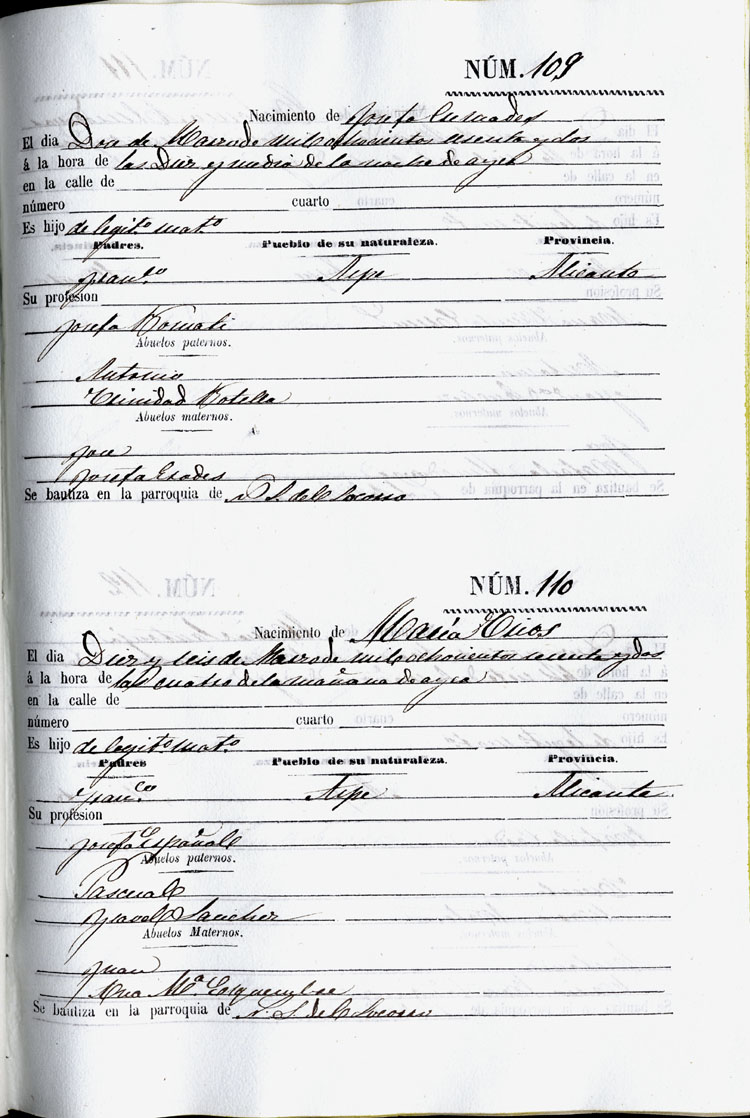 NÚM. 109
Nacimiento de Josefa Cremades
El dia Doce de Marzo de mil ochocientos sesenta y dos
á la hora de las Diez y media de la noche de ayer
en la calle de
número cuarto
Es hijo de legitº matº
Padres. Pueblo de su naturaleza. Provincia.
Franco Aspe Alicante
Su profesion
Josefa
Abuelos paternos.
Antonio
Trinidad Botella
Abuelos maternos.
Jose
Josefa
Se bautiza en la parroquia de N. S. del Socorro
NÚM. 110
Nacimiento de María
El dia Diez y seis de Marzo de mil ochocientos sesenta y dos
á la hora de las cuatro de la mañana de ayer
en la calle de
número cuarto
Es hijo de legitº matº
Padres Pueblo de su naturaleza. Provincia.
Franco Aspe Alicante
Su profesion
Josefa Español
Abuelos paternos.
Pascual
Ysavel Sanchez
Abuelos Maternos.
Juan
Ana Mª
Se bautiza en la parroquia de N. S. del Socorro